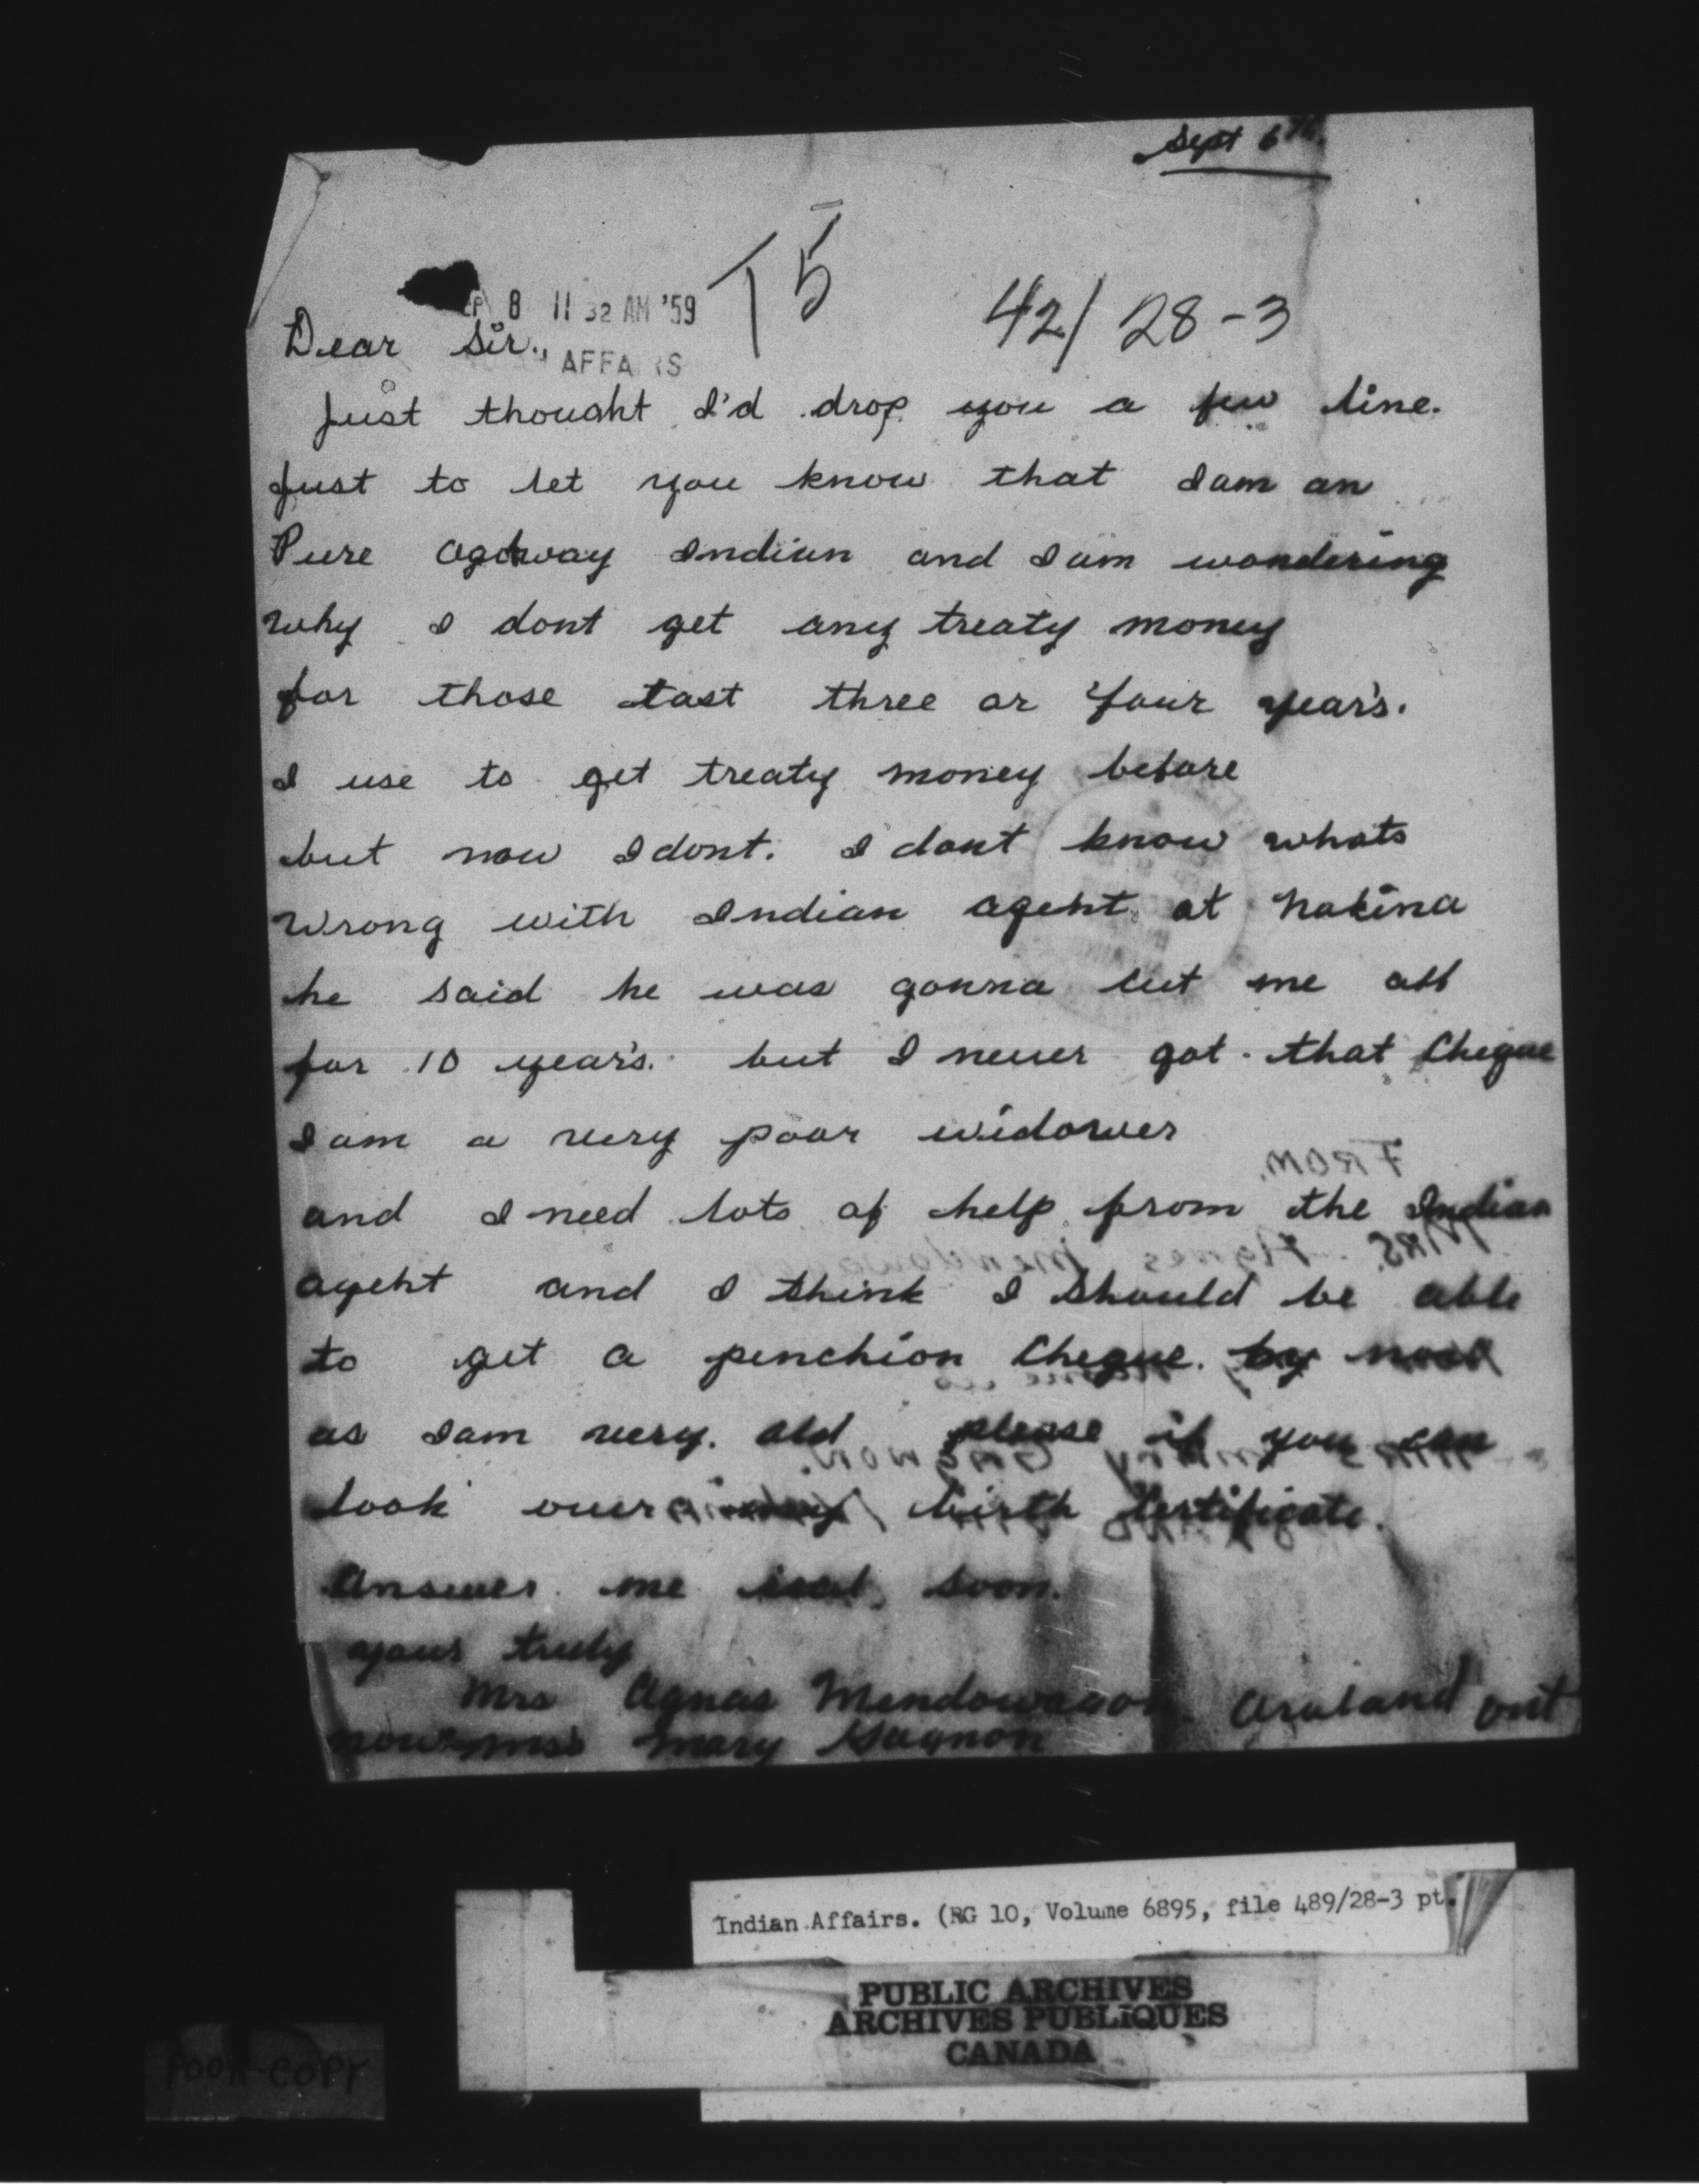 Sept 6th.
T5
8 11 32 AM '59
42/28-3
Dear Sir.,
AFFA RS
Just thought I'd drop you a few line.
Just to let you know that I am an
Pure Indian and I am wondering
why I dont get any treaty money
for those last three or four year's.
I use to get treaty money before
but now I dont. I dont know whats
wrong with Indian agent at Nakina
he said he was gonna cut me off
for 10 year's. but I never got that Cheque
I am a very poor widower
and I need lots of help from the Indian
agent and I think I should be able
to get a penchion Cheque. by now
as I am very. old please if you can
look over my birth Certificate.
Answer me real soon.
yours truly
Mrs Agnas Mendowagon Araland ont
now mrs Mary Gagnon
FROM.
MRS. Agnes
Indian Affairs. (RG 10, Volume 6895, file 489/28-3 pt.
PUBLIC ARCHIVES
ARCHIVES PUBLIQUES
CANADA
POOR COPY